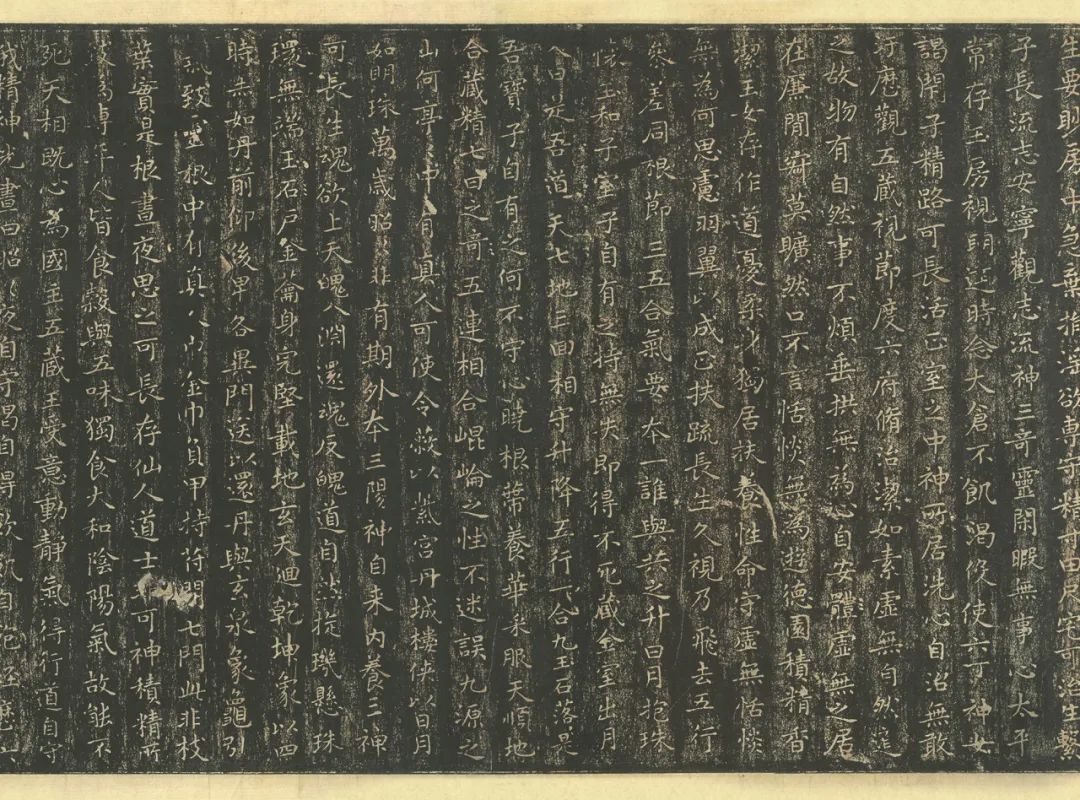 生要眇房中急棄捐淫欲專守精寸田尺宅可治生繫
子長流志安寧觀志流神三奇靈閑暇無事心太平
常存玉房視明達時念大倉不飢渴役使六丁神女
謁閉子精路可長活正室之中神所居洗心自治無敢
汙歷觀五藏視節度六府脩治潔如素虛無自然道
之故物有自然事不煩垂拱無為心自安體虛無之居
在廉間寂莫曠然口不言恬惔無為遊德園積精香
潔玉女存作道憂柔身獨居扶養性命守虛無恬惔
無為何思慮羽翼以成正扶疏長生久視乃飛去五行
參差同根節三五合氣要本一誰與共之升日月抱珠
懷玉和子室子自有之持無失即得不死藏金室出月
入日是吾道天七地三回相守升降五行一合九玉石落是
吾寶子自有之何不守心曉根蒂養華采服天順地
合藏精七日之奇五連相合崐崘之性不迷誤九源之
山何亭中有真人可使令蔽以紫宮丹城樓俠以日月
如明珠萬歲昭非有期外本三陽神自來內養三神
可長生魂欲上天魄入淵還魂反魄道自然旋璣懸珠
環無端玉石戶金籥身完堅載地玄天迴乾坤象以四
時赤如丹前仰後卑各異門送以還丹與玄泉象龜引
氣致靈根中有真人巾金巾負甲持符開七門此非枝
葉實是根晝夜思之可長存仙人道士可神積精所
致為專年人皆食穀與五味獨食大和陰陽氣故能不
死天相既心為國主五藏王受意動靜氣得行道自守
我精神光晝日昭夜自守渴自得飲飢自飽